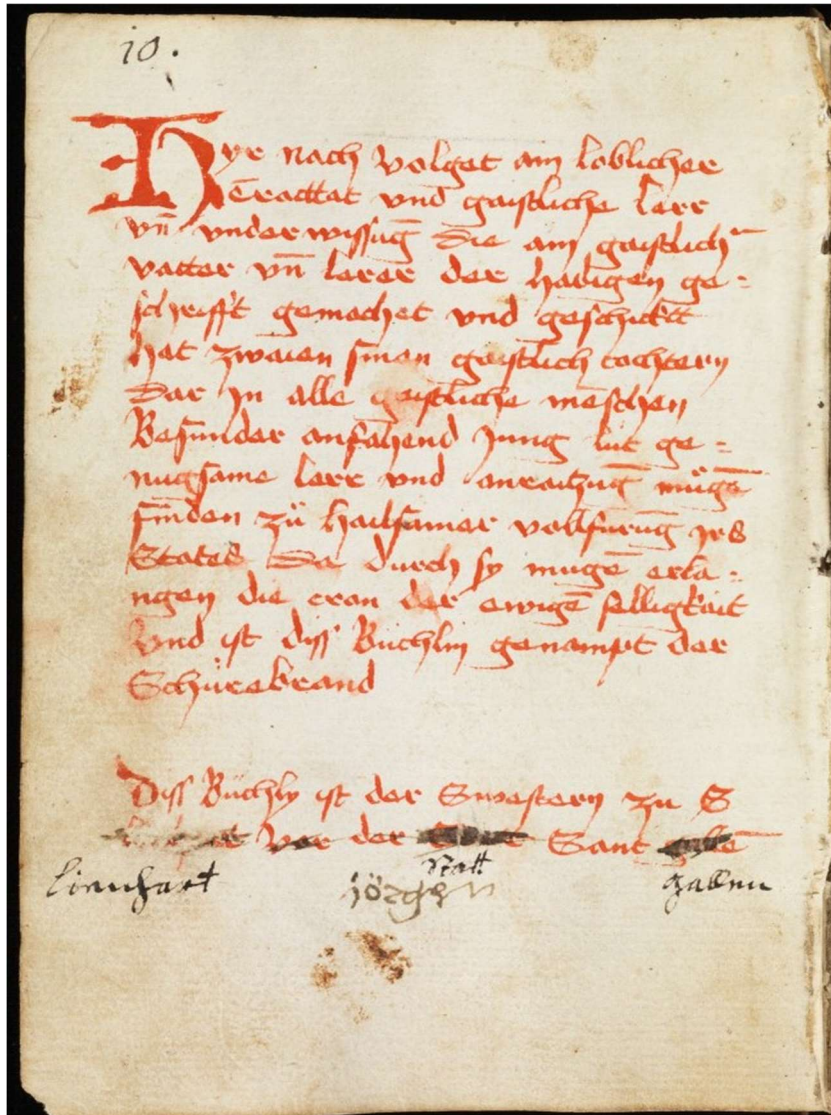 10.
Hye nach volget ain loblicher
Tractat und gaistliche lerr
vn̄ underwissūg die ain gaistlich
vatter vn̄ lerer der hailigen ge=
schrifft gemachet und geschickt
hat zwaien sinen gaistlich tochtern
Dar jn alle gaistliche menschen
Besunder anfahend jung lüt ge=
nůgsame lerr und anraitzūg mügē
finden zů hailsamer vollfürūg jrs
States Da durch sy mugē erla=
ngen die cron der ewigē selligkait
Vnd ist diss Büchlin genampt der
Schürebrand
Diss Büchly ist der Swestern zu S
vor der Sant
Lienhart Statt gallenn
jörgen